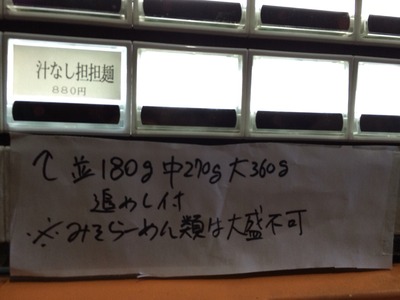 汁なし担担麺
880円
↑並180g中270g大360g
追めし付
※みそらーめん類は大盛不可